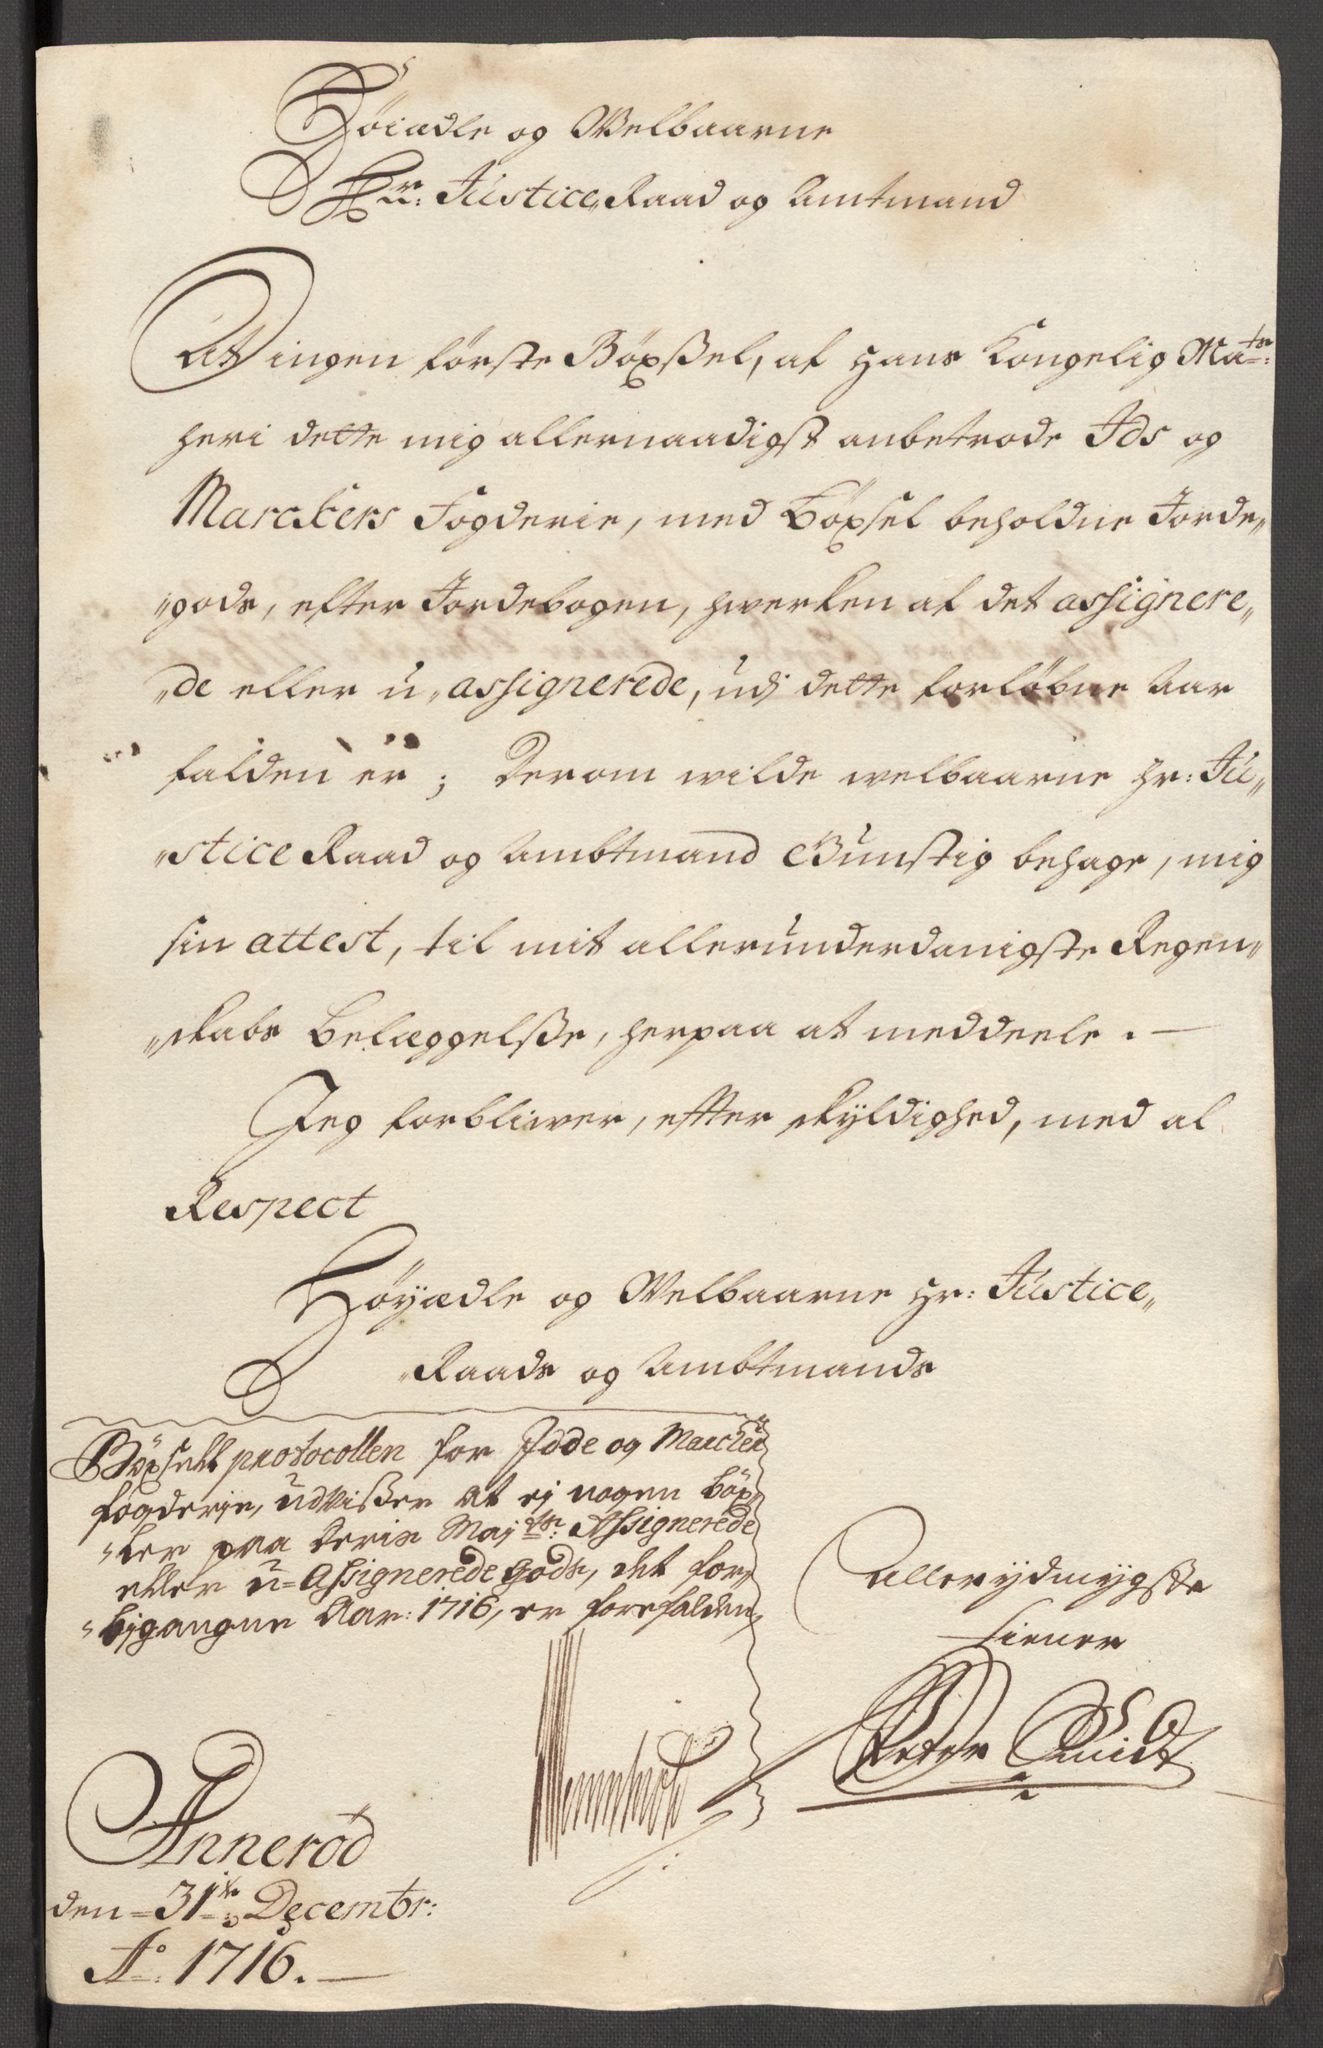 Höiædle og Welbaarne
Hr: Justice Raad og Amtmand
At ingen første Böxssel, af Hans Kongelig Mayts:
heri dette mig allernaadigst anbetrode Ids og
Marckers Fogderie, med Böxsel beholdne Jorde„
„gods, efter Jordebogen, hwerken af det assignere„
„de eller u„assignerede, udj dette forløbne Aar
falden er; Derom wilde welbaarne Hr: Ju„
„stice Raad og Ambtmand Gunstig behage, mig
sin attest, til mit allerunderdanigste Regen„
„skabs Belæggelsse, herpaa at meddeele. —
Jeg forbliwer, efter skyldighed, med al
Respect
Høyædle og Welbaarne Hr: Justice„
„Raads og Ambtmands
Böxsell protocollen for Idde og Marcker
fogderie, udvisser at ej nogen böx„
„ler paa Deris Mayts: Assignerede
eller u=Assignerede gods, det for„
„bigangne Aar: 1716, er forefalden,
Allerydmygste
Tiener
Peter Smidt
Annerød
den=31te: Decembr:
Ao: 1716. —